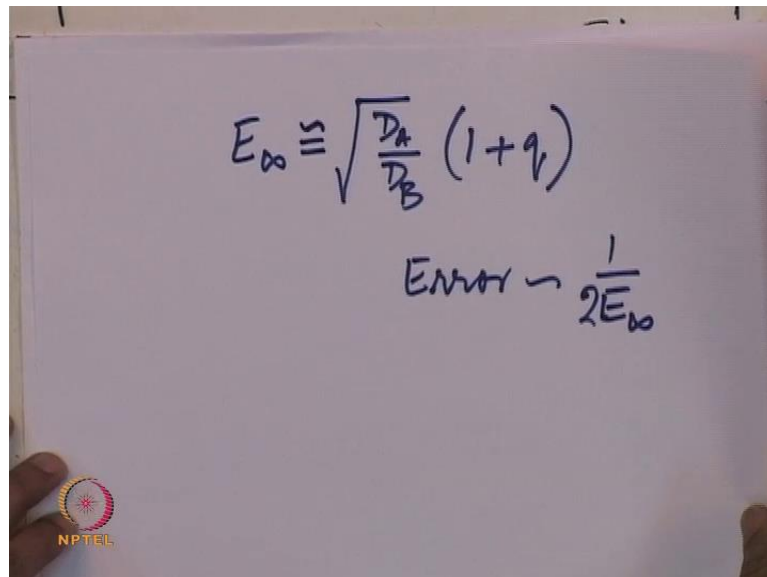 E∞ ≅ √(D_A/D_B) (1+q)
Error ~ 1/2E∞
NPTEL